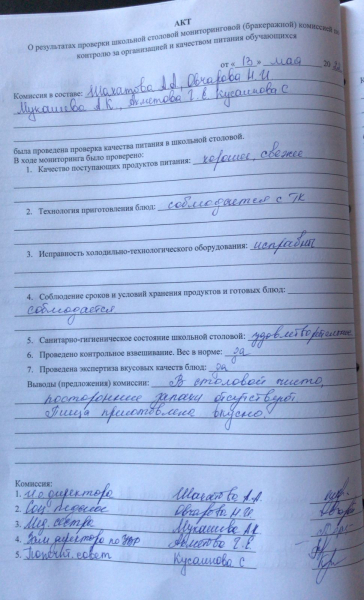 АКТ
О результатах проверки школьной столовой мониторинговой (бракеражной) комиссией по
контролю за организацией и качеством питания обучающихся
от « 13 » май 20 22
Комиссия в составе: Шахатова А.А, Овчарова Н.И
Мукашева А.К, Ахметова Г.Е Кусаинова С
была проведена проверка качества питания в школьной столовой.
В ходе мониторинга было проверено:
1. Качество поступающих продуктов питания: хорошее, свежее
2. Технология приготовления блюд: соблюдается с ТК
3. Исправность холодильно-технологического оборудования: исправны
4. Соблюдение сроков и условий хранения продуктов и готовых блюд:
соблюдается
5. Санитарно-гигиеническое состояние школьной столовой: удовлетворительное
6. Проведено контрольное взвешивание. Вес в норме: да
7. Проведена экспертиза вкусовых качеств блюд: да
Выводы (предложения) комиссии: В столовой чисто,
посторонние запахи отсутствуют.
Пища приготовлена вкусно.
Комиссия:
1. И.о директора Шахатова А.А.
2. Соц. педагог Овчарова Н.И
3. Мед. сестра Мукашева А.К
4. Зам директора по Ахметова Г.Е
5. Попечит. совет Кусаинова С